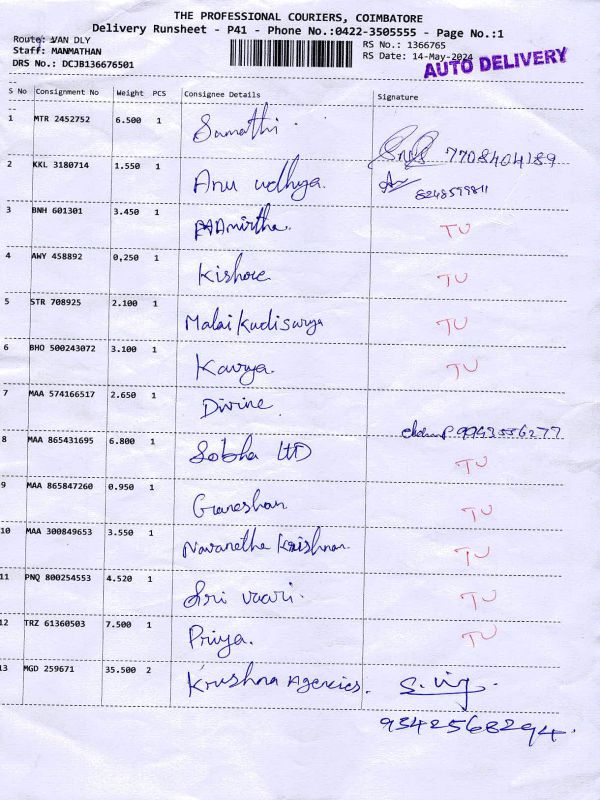 THE PROFESSIONAL COURIERS, COIMBATORE
Delivery Runsheet - P41 - Phone No.:0422-3505555 - Page No.:1
Route: VAN DLY
Staff: MANMATHAN
DRS No.: DCJB136676501
RS No.: 1366765
RS Date: 14-May-2024
AUTO DELIVERY
S No Consignment No Weight PCS Consignee Details Signature
1 MTR 2452752 6.500 1 Sumathi. 7708404189
2 KKL 3180714 1.550 1 Anu vdhya. 8248599811
3 BNH 601301 3.450 1 Amirtha. TU
4 AWY 458892 0,250 1 Kishore TU
5 STR 708925 2.100 1 Malai Kudi Surya TU
6 BHO 500243072 3.100 1 Kavya. TU
7 MAA 574166517 2.650 1 Divine. 9943556277
8 MAA 865431695 6.800 1 Sobha LTD TU
9 MAA 865847260 0.950 1 Ganeshan TU
10 MAA 300849653 3.550 1 Navanetha Krishnan TU
11 PNQ 800254553 4.520 1 Sri vaari. TU
12 TRZ 61360503 7.500 1 Priya. TU
13 MGD 259671 35.500 2 Krushna Agencies.
9342568294.